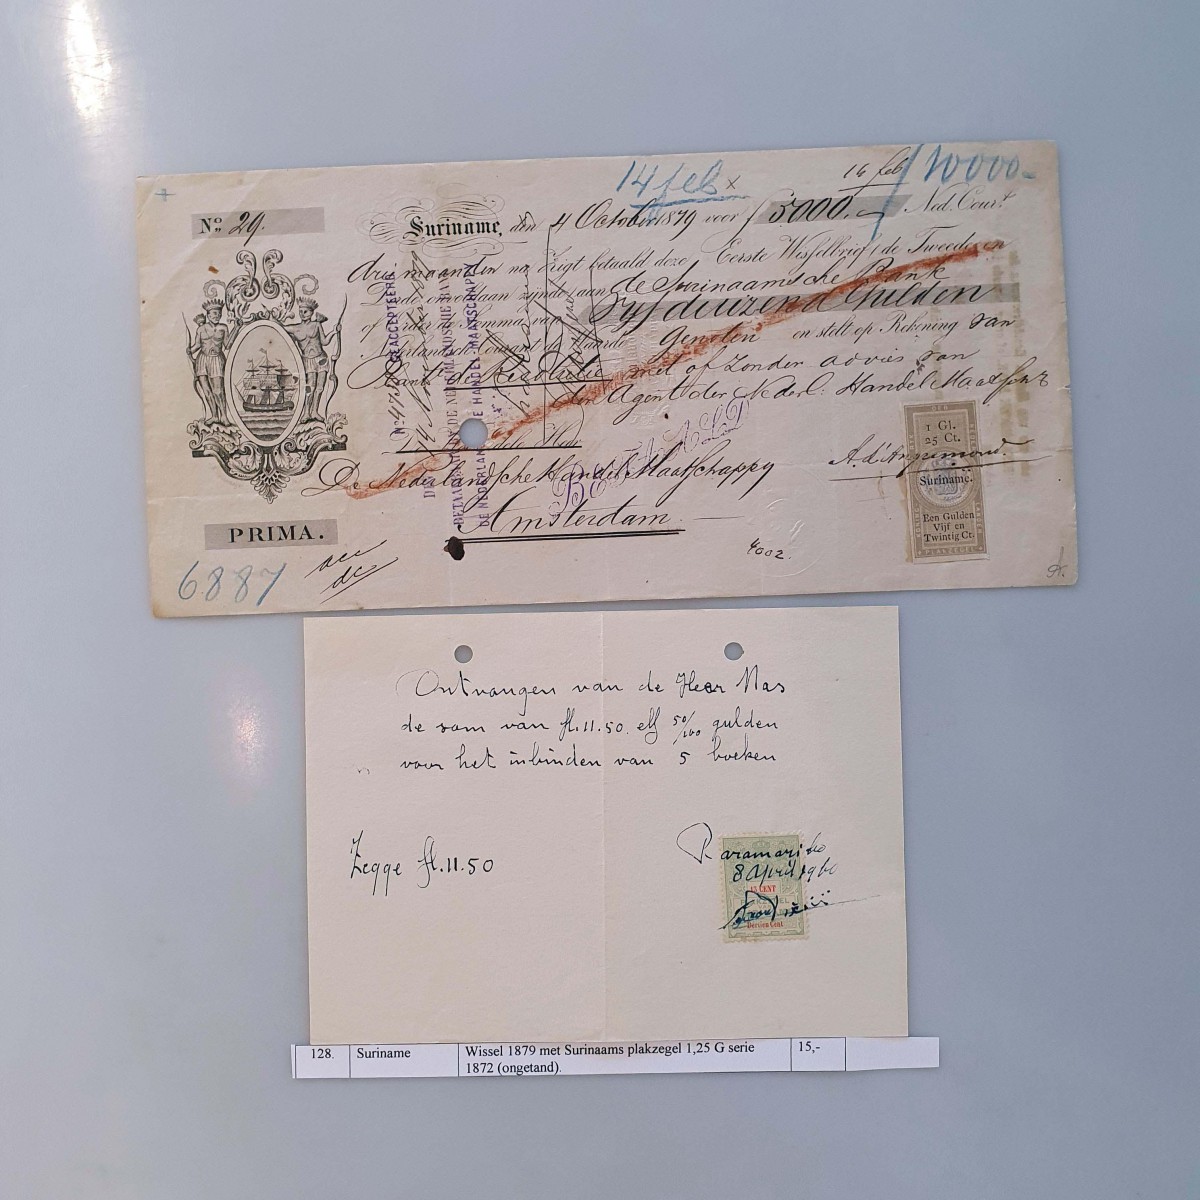 14 feb x
14 feb
10000-
No. 29.
Suriname, den 4 October 1879 voor f 5000.- Ned. Cour.t
drie maanden na zigt betaald deze Eerste Wisselbrief (de Tweede en
Derde onvoldaan zijnde) aan de Surinaamsche Bank
of order de somma van Vijfduizend Gulden
Nederlandsch Courant de Waarde Genoten en stelt op Rekening van
met of zonder advies van
den Agent der Nederl: Handel Maatsch.
De Nederlandsche Handel Maatschappy
Amsterdam
GEACCEPTEERD
DE NEDERLANDSCHE HANDEL-MAATSCHAPPY
BETAALD
1 Gl.
25 Ct.
Suriname.
Een Gulden
Vijf en
Twintig Ct.
PLAKZEGEL
PRIMA.
6887
4002.
Ontvangen van de Heer Nas
de som van fl. 11.50. elf 50/100 gulden
voor het inbinden van 5 boeken
Zegge fl. 11.50
Paramaribo
8 April 1960
15 CENT
128. Suriname Wissel 1879 met Surinaams plakzegel 1,25 G serie 15,-
1872 (ongetand).